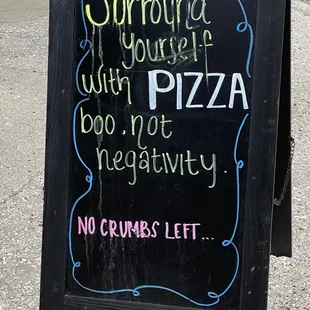 Surround
yourself
with PIZZA
boo, not
negativity.
NO CRUMBS LEFT...